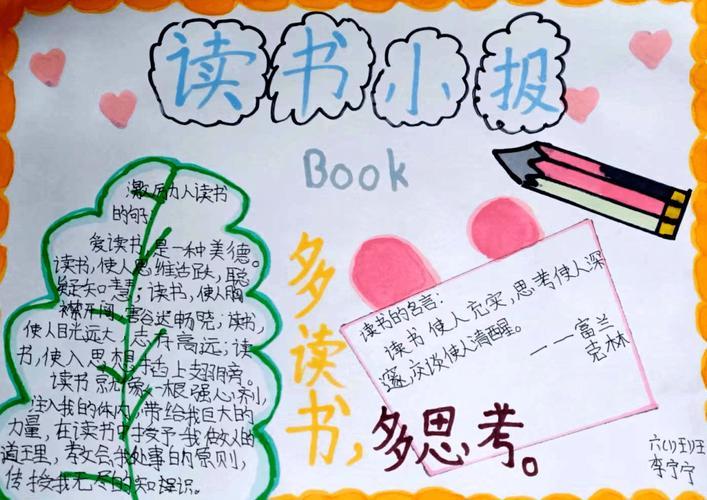 读书小报
Book
激励人读书
的句子:
爱读书,是一种美德。
读书,使人思维活跃,聪
颖知慧;读书,使人胸
襟开阔,豁达畅晓;读书,
使人目光远大,志存高远;读
书,使人思想插上翅膀。
读书就像一根强心剂,
注入我的体内,带给我巨大的
力量,在读书中授予我做人的
道理,教会我处事的原则,
传授我无尽的知识。
多读书,
多思考。
读书的名言:
读书使人充实,思考使人深
邃,交谈使人清醒。
——富兰
克林
六(1)班
李宁宁